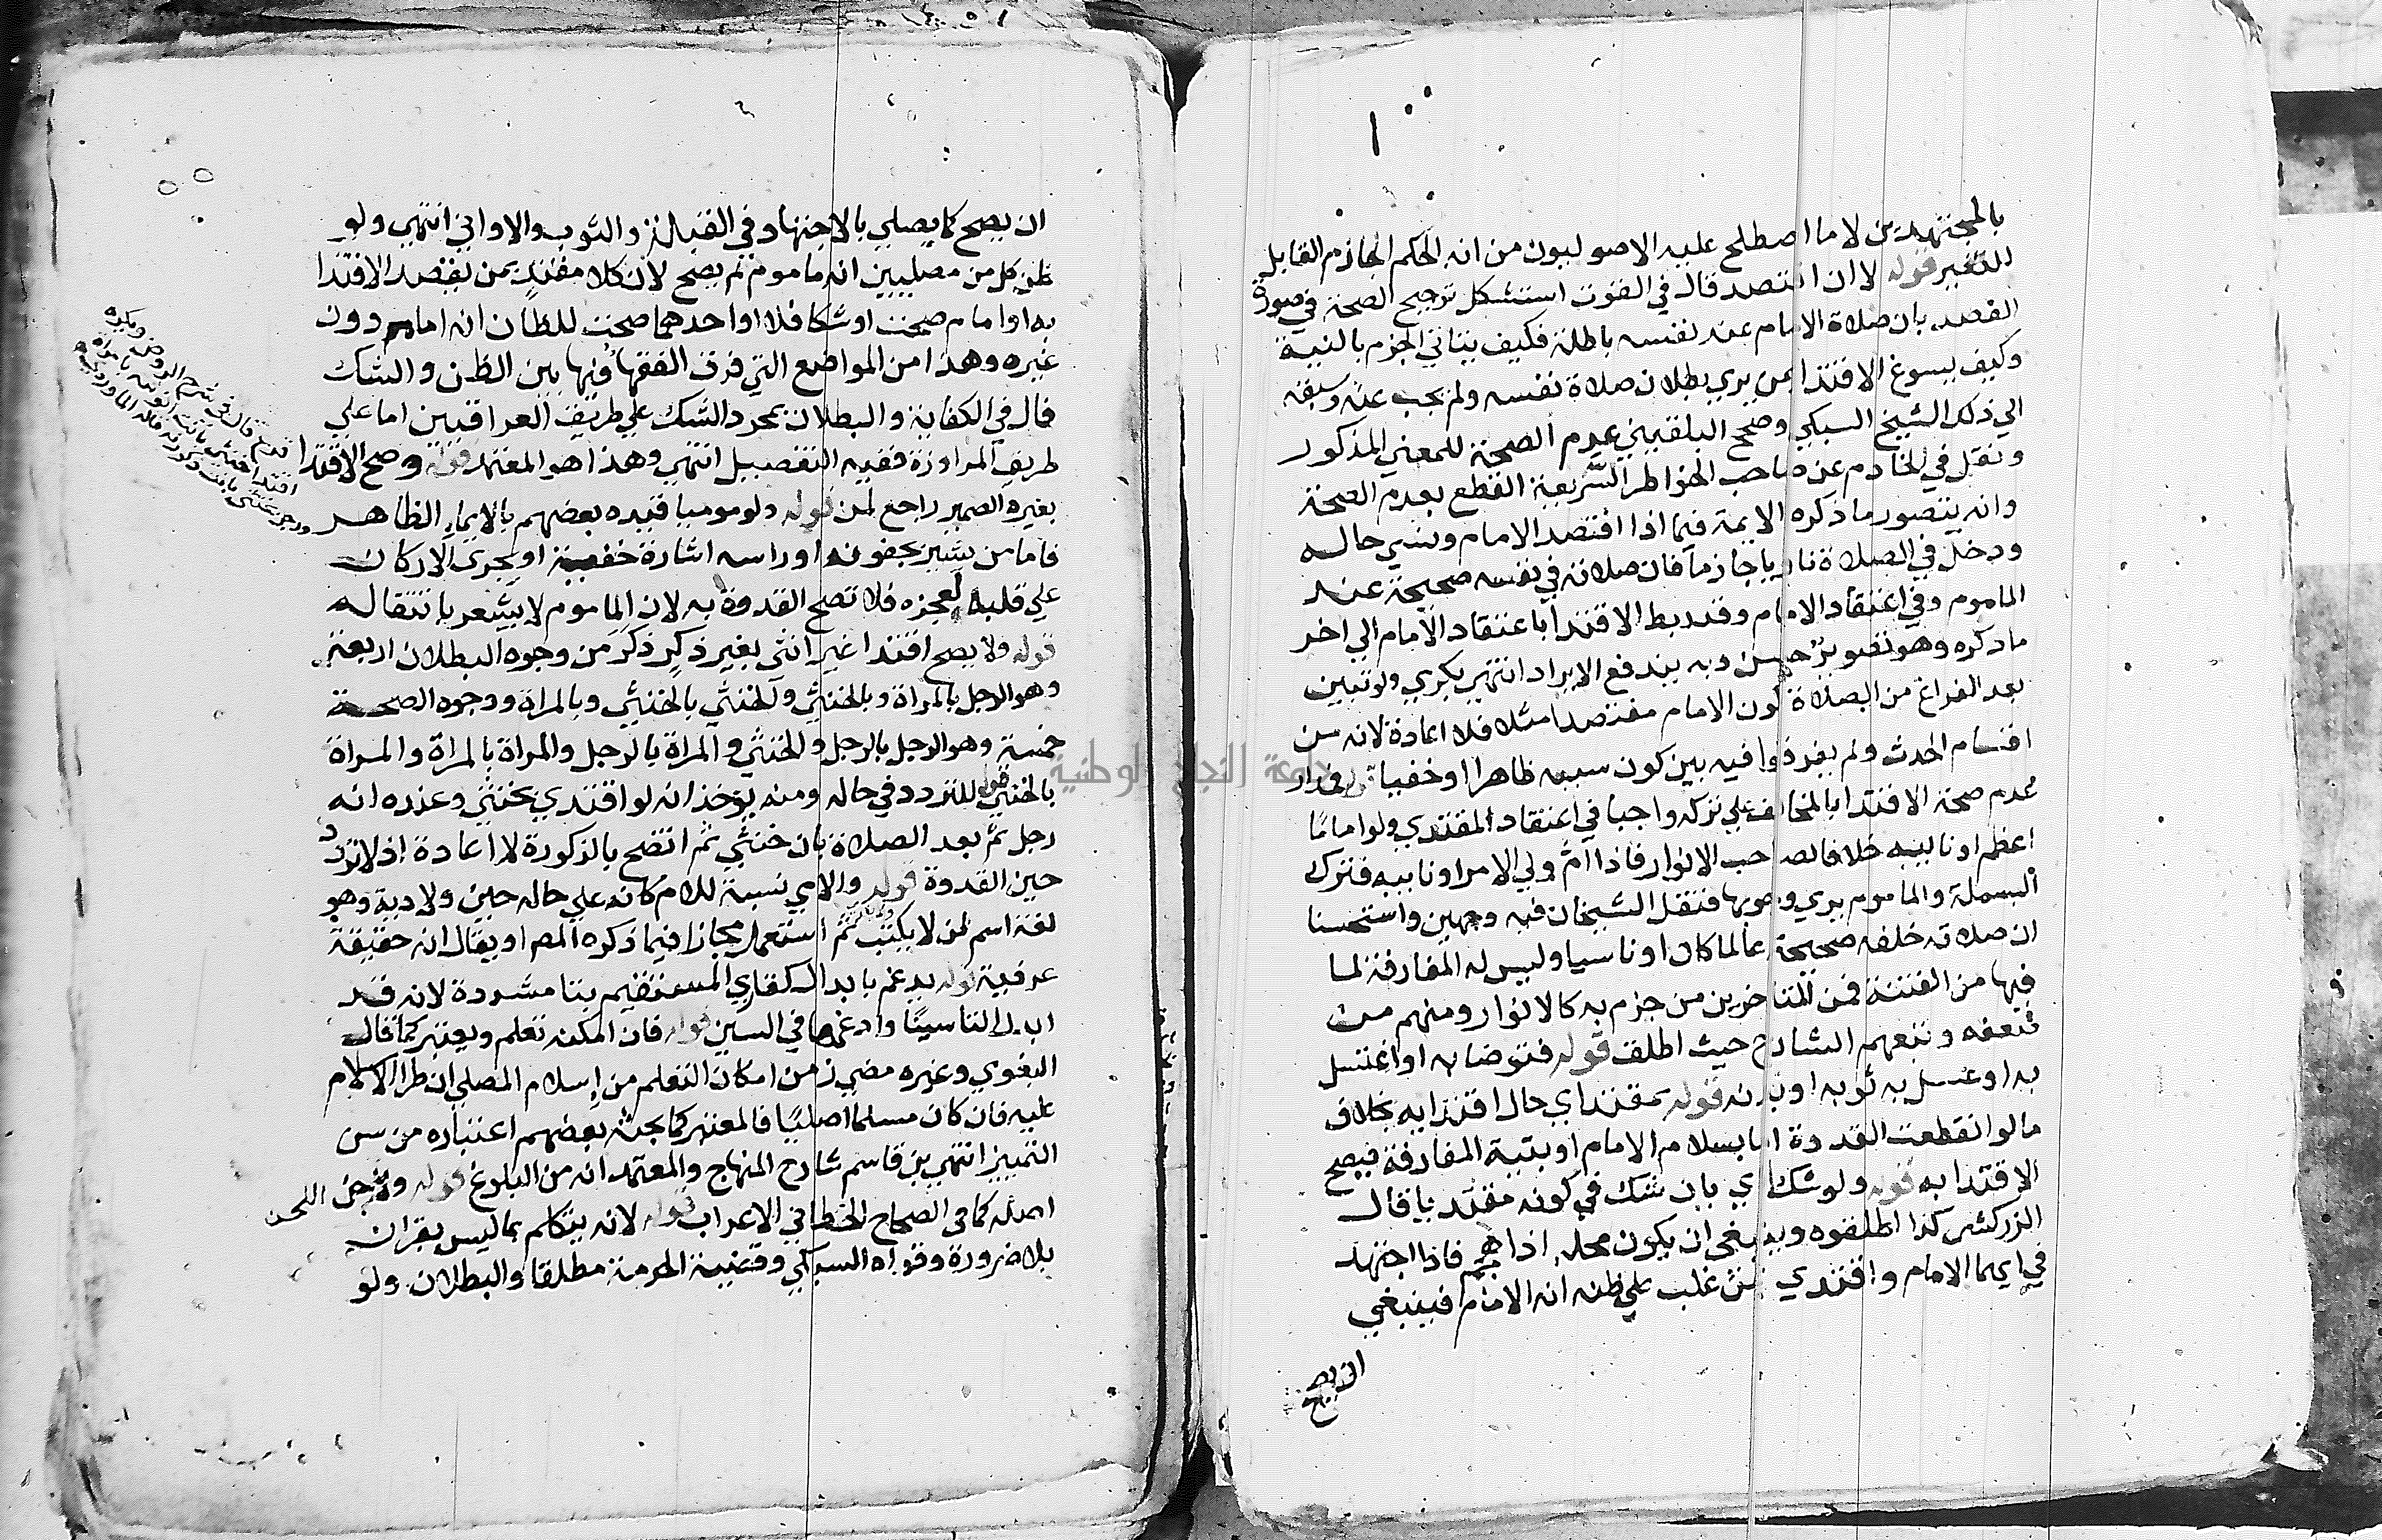 بالمجتهدين لا ما اصطلح عليه الاصوليون من انه الحكم الجازم القابل
للتغير قوله لا ان افتصد قال في القوت استشكل ترجيح الصحة في صورة
الفصد بان صلاة الامام عند نفسه باطلة فكيف يتاتي الجزم بالنية
وكيف يسوغ الاقتدا بمن يري بطلان صلاة نفسه ولم يجب عنه وسبقه
الي ذلك الشيخ السبكي وصحح البلقيني عدم الصحة للمعني المذكور
ونقل في الخادم عن صاحب الخواطر الشريفة القطع بعدم الصحة
وانه يتصور ما ذكره الايمة فيما اذا افتصد الامام ونسي حاله
ودخل في الصلاة ناويا جازما فان صلاته في نفسه صحيحة عند
الماموم وفي اعتقاد الامام وقد ربط الاقتدا باعتقاد الامام الي اخر
ما ذكره وهو تصوير حسن وبه يندفع الايراد انتهي بكري ولو تبين
بعد الفراغ من الصلاة كون الامام مفتصدا مثلا فلا اعادة لانه من
اقسام الحدث ولم يفرقوا فيه بين كون سببه ظاهرا او خفيا
عدم صحة الاقتدا بالمخالف علي تركه واجبا في اعتقاد المقتدي ولو اماما
اعظم او ناييه خلافا لصاحب الانوار فاذا ام ولي الامر او ناييه فترك
البسملة والماموم يري وجوبها فنقل الشيخان فيه وجهين واستحسنا
ان صلاته خلفه صحيحة عالما كان او ناسيا وليس له المفارقة لما
فيها من الفتنة فمن المتاخرين من جزم به كالانوار ومنهم من
تعقبه وتبعهم الشارح حيث اطلق قوله فتوضا به او اغتسل
به او غسل به ثوبه او بدنه قوله بمقتد اي حال اقتدايه بخلاف
ما لو انقطعت القدوة اما بسلام الامام او بنية المفارقة فيصح
الاقتدا به قوله ولو شك اي بان شك في كونه مقتديا قال
الزركشي كذا اطلقوه وينبغي ان يكون محله اذا هجم فاذا اجتهد
في ايهما الامام واقتدي بمن غلب علي ظنه انه الامام فينبغي
ان يصح
ان يصح كما يصلي بالاجتهاد في القبلة والثوب والاواني انتهي ولو
ظن كل من مصليين انه ماموم لم يصح لان كلا مقتد بمن يقصد الاقتدا
به او امام صحت او شكا فلا او احدهما صحت للظان انه امام دون
غيره وهذا من المواضع التي فرق الفقهاء فيها بين الظن والشك
قال في الكفاية والبطلان بمجرد الشك علي طريق العراقيين اما علي
طريق المراوزة ففيه التفصيل انتهي وهذا هو المعتمد قوله وصح الاقتدا
بغيره الضمير راجع لمن قوله ولو موميا قيده بعضهم بالايماء الظاهر
فاما من يشير بجفونه او راسه اشارة خفية او يجري الاركان
علي قلبه لعجزه فلا تصح القدوة به لان الماموم لا يشعر بانتقاله
قوله ولا يصح اقتدا غير انثي بغير ذكر ذكر من وجوه البطلان اربعة
وهو الرجل بالمراة وبالخنثي والخنثي بالخنثي وبالمراة ووجوه الصحة
خمسة وهو الرجل بالرجل والخنثي والمراة بالرجل والمراة بالمراة والمراة
بالخنثي قوله للتردد في حاله ومنه يوخذ انه لو اقتدي بخنثي وعنده انه
رجل ثم بعد الصلاة بان خنثي ثم اتضح بالذكورة لا اعادة اذ لا تردد
حين القدوة قوله والامي نسبة للام كانه علي حاله حين ولادته وهو
لغة اسم لمن لا يكتب ثم استعمل مجازا فيما ذكره المص او يقال انه حقيقة
عرفية قوله يدغم بابدال كقاري المستقيم بتا مشددة لانه قد
ابدل التا سينا وادغمها في السين قوله فان امكنه تعلم ويعتبر كما قال
البغوي وغيره مضي زمن امكان التعلم من اسلام المصلي ان طرا الاسلام
عليه فان كان مسلما اصليا فالمعتبر كما بحثه بعضهم اعتباره من سن
التمييز انتهي بن قاسم شارح المنهاج والمعتمد انه من البلوغ قوله ولاحن اللحن
اصله كما في الصحاح الخطا في الاعراب قوله لانه يتكلم بما ليس بقران
بلا ضرورة وقواه السبكي وقضية الحرمة مطلقا والبطلان ولو
قال في شرح الروض ويكره
جامعة النجاح الوطنية